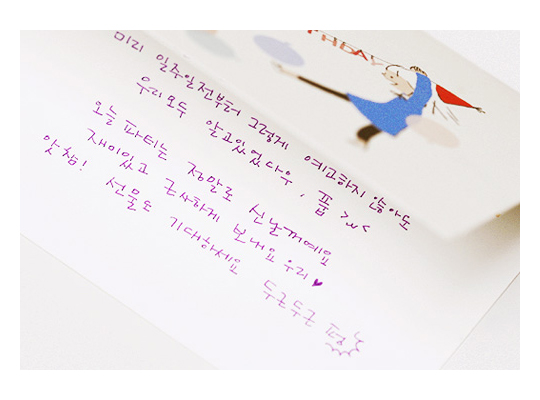 HDAY
미리 일주일전부터 그렇게 예고하지 않아도
우리모두 알고있었다우, 풉 >_<
오늘 파티는 정말로 신날꺼예요
재미있고 근사하게 보내요 우리♥
앗참! 선물도 기대하세요 두근두근